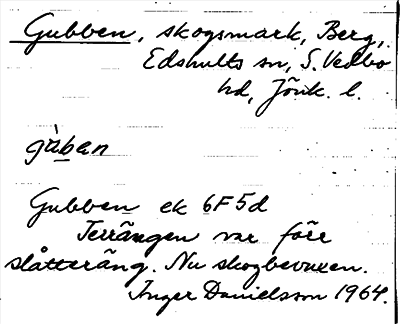 Gubben, skogsmark, Berg,
Edshults sn, S. Vedbo
hd, Jönk. l.
gùban
Gubben ek 6F5d
Terrängen var förr
slåtteräng. Nu skogbevuxen.
Inger Danielsson 1964.